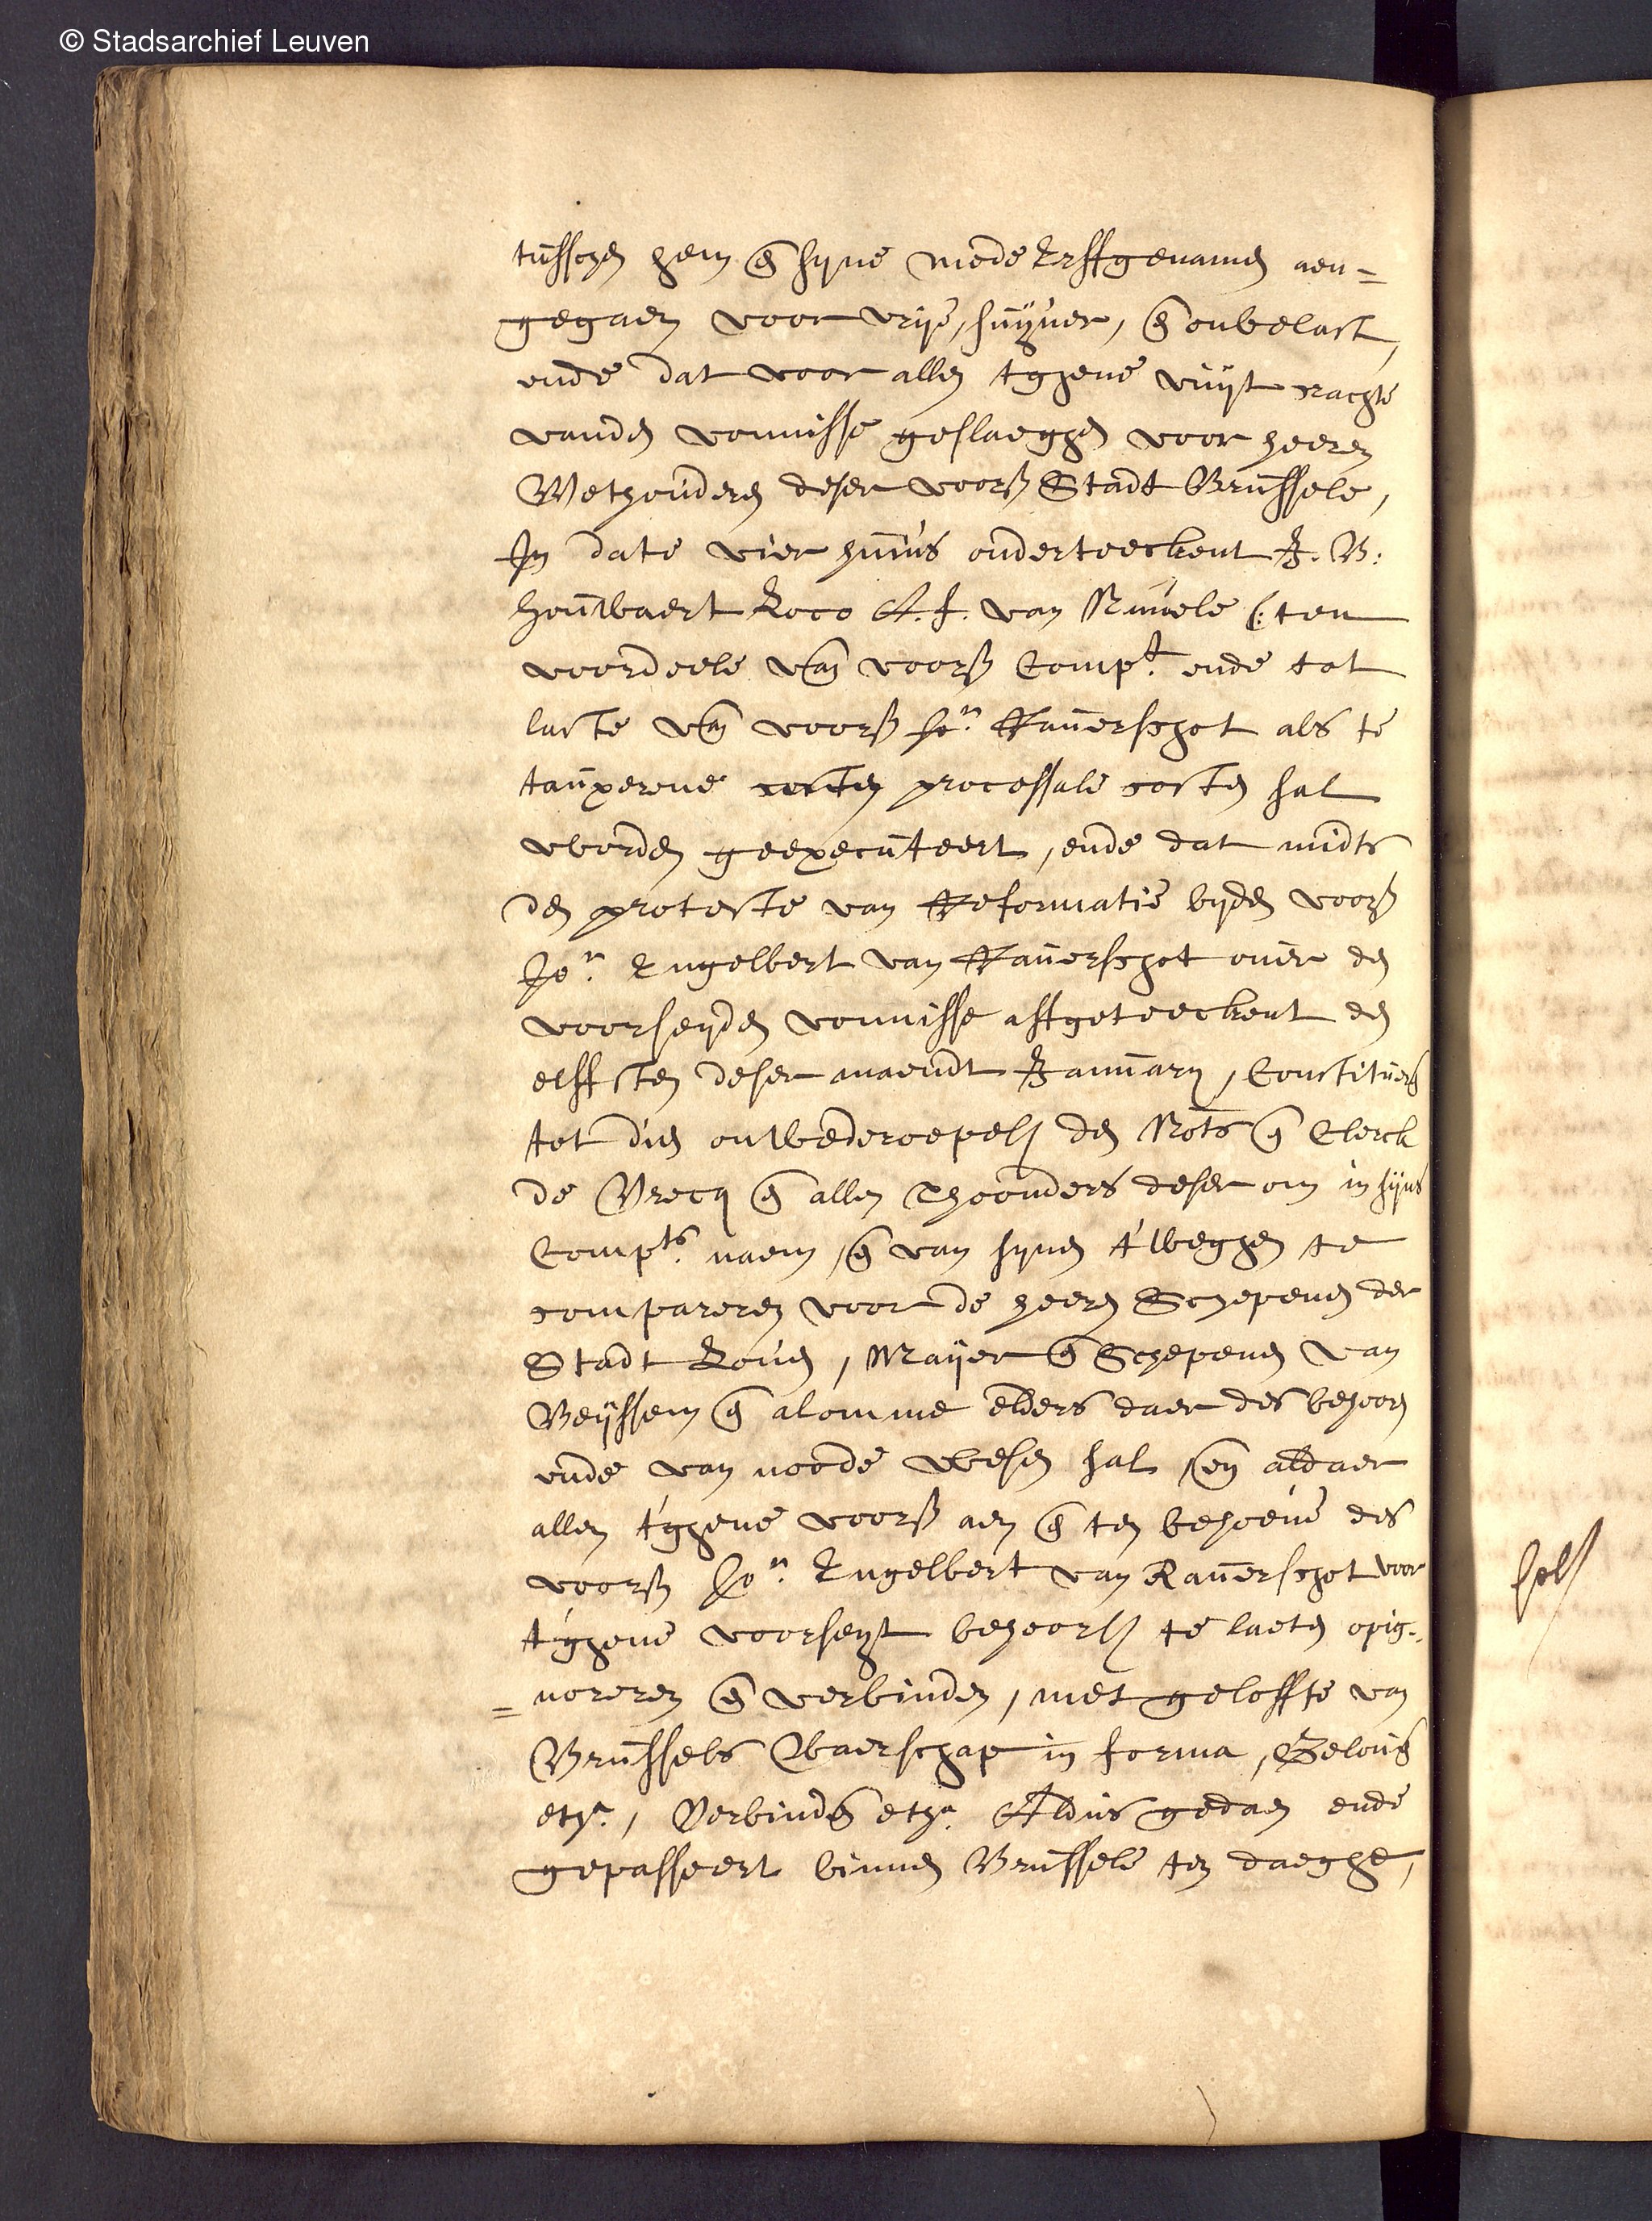 © Stadsarchief Leuven
tusschen hem en̄ syne mede Erffgenamen aen=
gegaen voor vrije, suÿver, en̄ onbelast,
ende dat voor allen tghene vuÿt crachte
vanden vonnisse geslaeghen voor heeren
Wethouderen deser voors Stadt Brussele,
In date vier huius onderteeckent J. B:
Houwaert Loco A. f. van Nuvele (: ten
voordeele van voors Compt. ende tot
laste van voors Jor. Raverschot als te
tauxerene costen processale costen sal
worden geexecuteert, ende dat midts
den proteste van Reformatie byden voors
Jor. Engelbert van Raverschot over den
voorseyden vonnisse affgeteeckent den
elffsten deser maendt January, Constituerende
tot dien onwederroepelyck den Nots en̄ Clerck
de Brecq en̄ allen Thoonders deser om in syns
Compts. naem, en̄ van synen t'weghen te
compareren voor de heeren Schepenen der
Stadt Loven, Mayer en̄ Schepenen van
Beyssem en̄ alomme elders daer des behooren
ende van noode wesen sal, en̄ aldaer
allen t'ghene voors aen en̄ ten behoeve des
voors Jor. Engelbert van Raverschot voor
t'ghene voorseyt behoorlyck te laeten opig=
=noreren en̄ verbinden, met geloffte van
Brussels Waerschap in forma, Gelovende
etca., Verbindende etca. Aldus gedaen ende
gepasseert binnen Brussele ten daeghe,